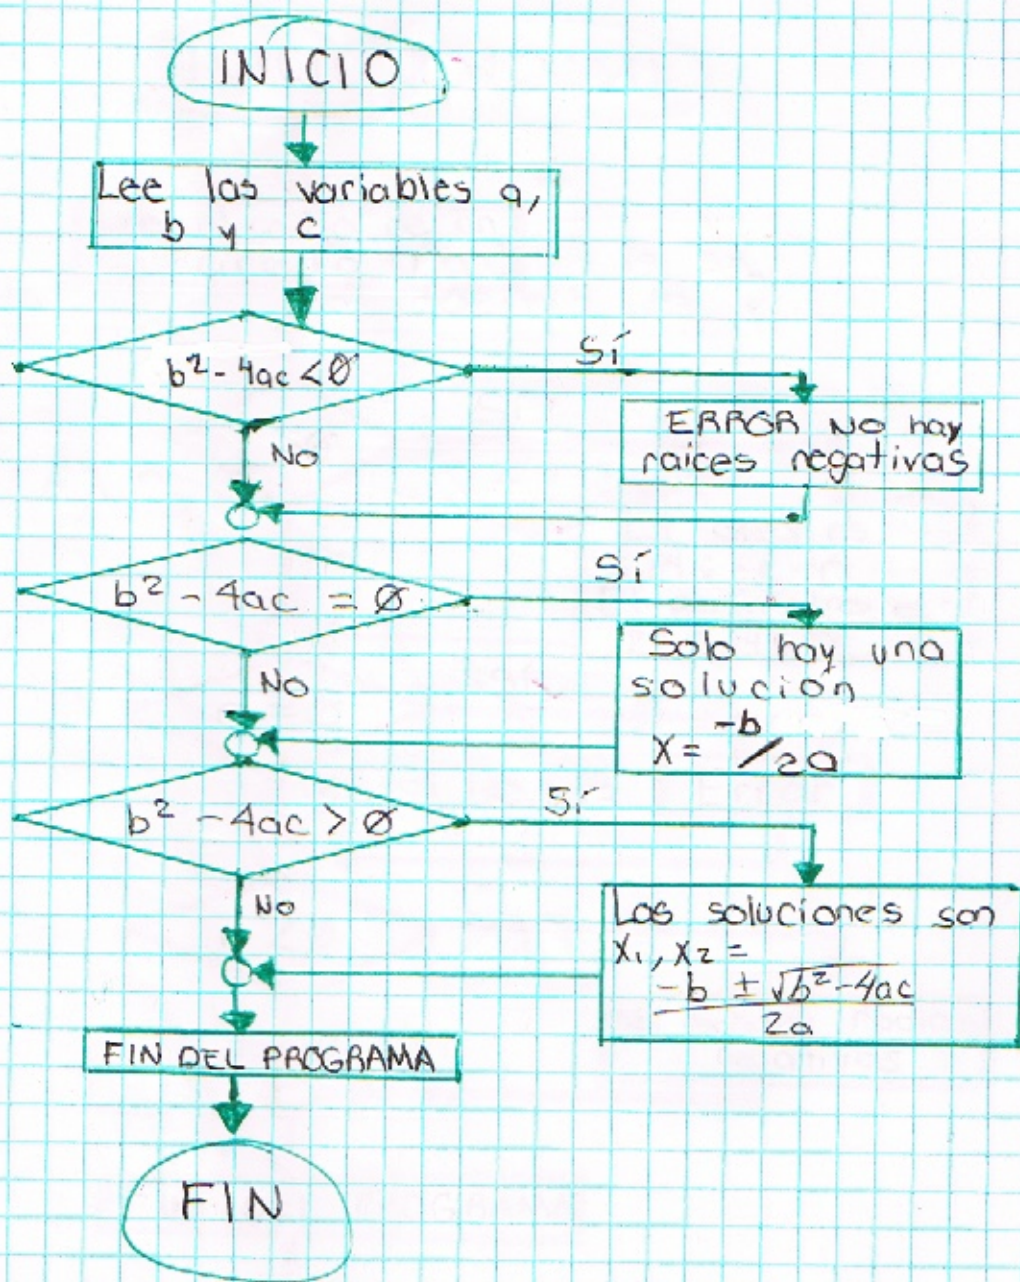 INICIO
Lee las variables a,
b y c
b² - 4ac < Ø
Sí
ERROR No hay
raices negativas
No
b² - 4ac = Ø
Sí
Solo hay una
solución
x = -b/2a
No
b² - 4ac > Ø
Sí
Las soluciones son
x₁, x₂ =
-b ± √b²-4ac
2a
No
FIN DEL PROGRAMA
FIN